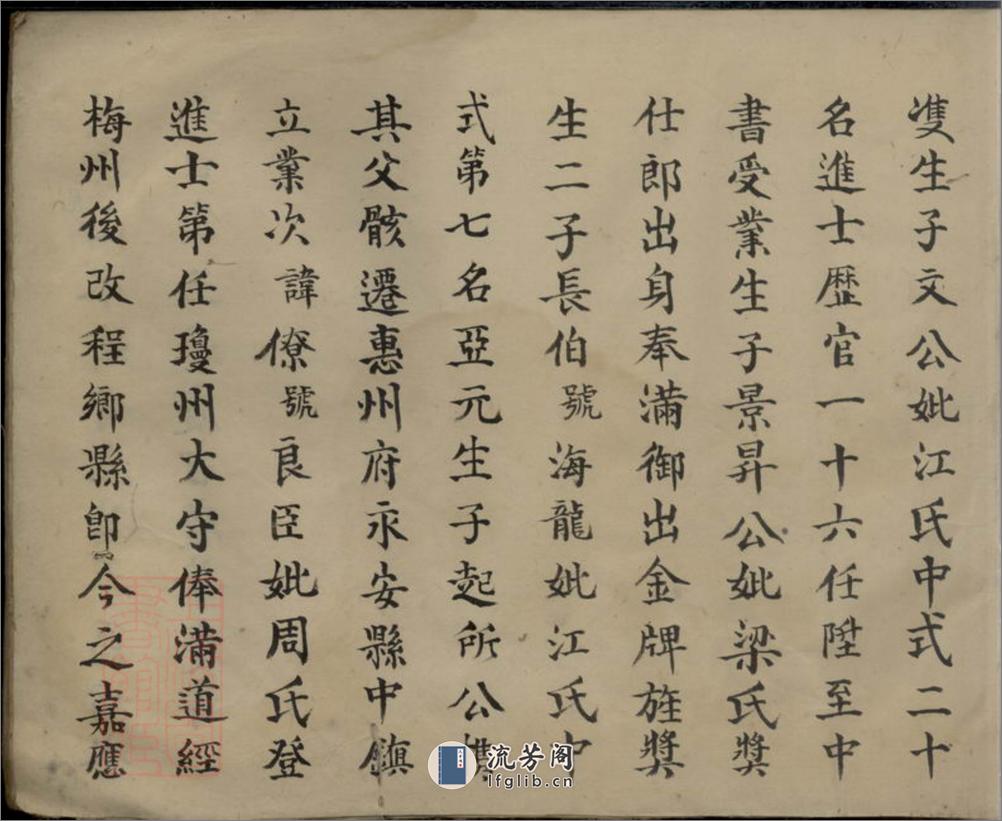 隻生子文公妣江氏中式二十
名進士歷官一十六任陞至中
書受業生子景昇公妣梁氏獎
仕郎出身奉滿御出金牌旌獎
生二子長伯號海龍妣江氏中
式第七名亞元生子起所公携
其父骸遷惠州府永安縣中鎮
立業次諱僚號良臣妣周氏登
進士第任瓊州大守俸滿道經
梅州後改程鄉縣卽今之嘉應
流芳阁
lfglib.cn